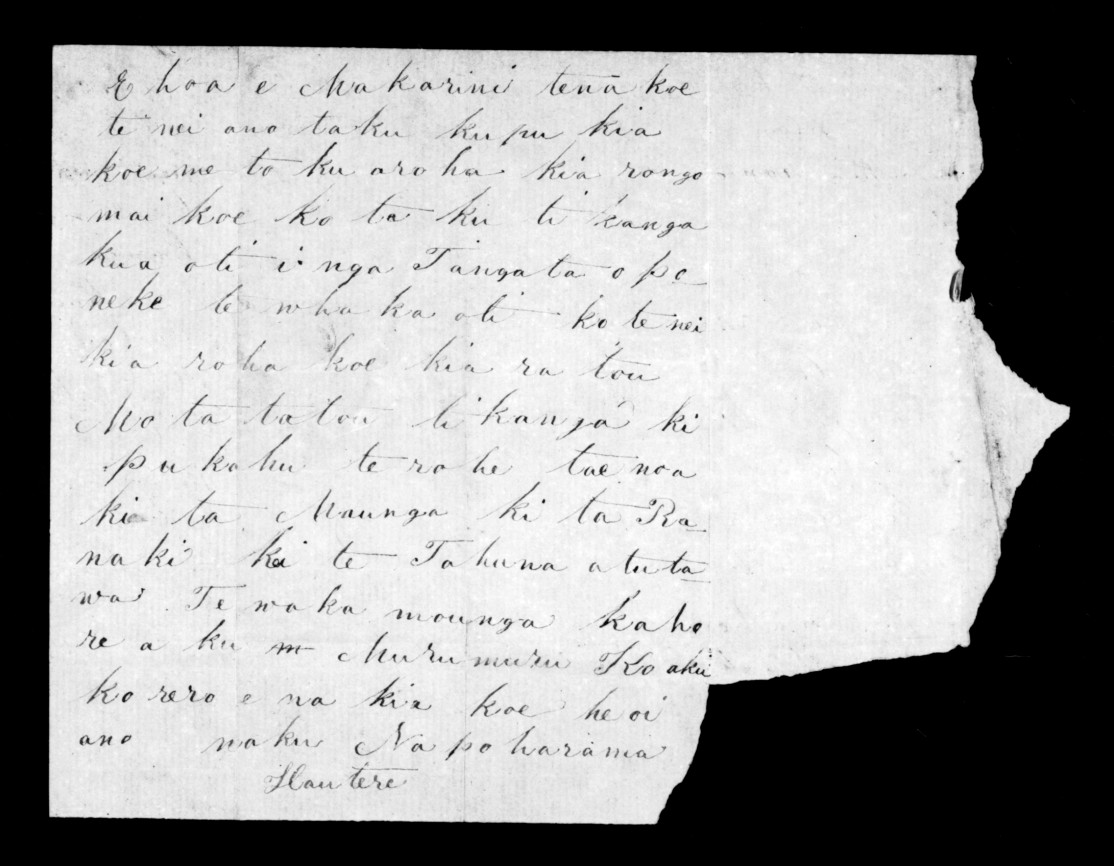 E hoa e Makarini tena koe
te nei ano taku kupu kia
koe me to ku aroha kia rongo
mai koe ko ta ku ti kanga
kua oti i nga Tangata o po
neke te whaka oti ko te nei
kia roha koe kia ra tou
Mo ta tatou tikanga ki
pukahu te rohe tae noa
kia ta Maunga ki ta Ra
naki kei te Tahuna atuta
wa. Te waka maunga kaho
re a ku m Murumuru Ko aku
korero e na kia koe heoi
ano naku Na poharama
Hautere